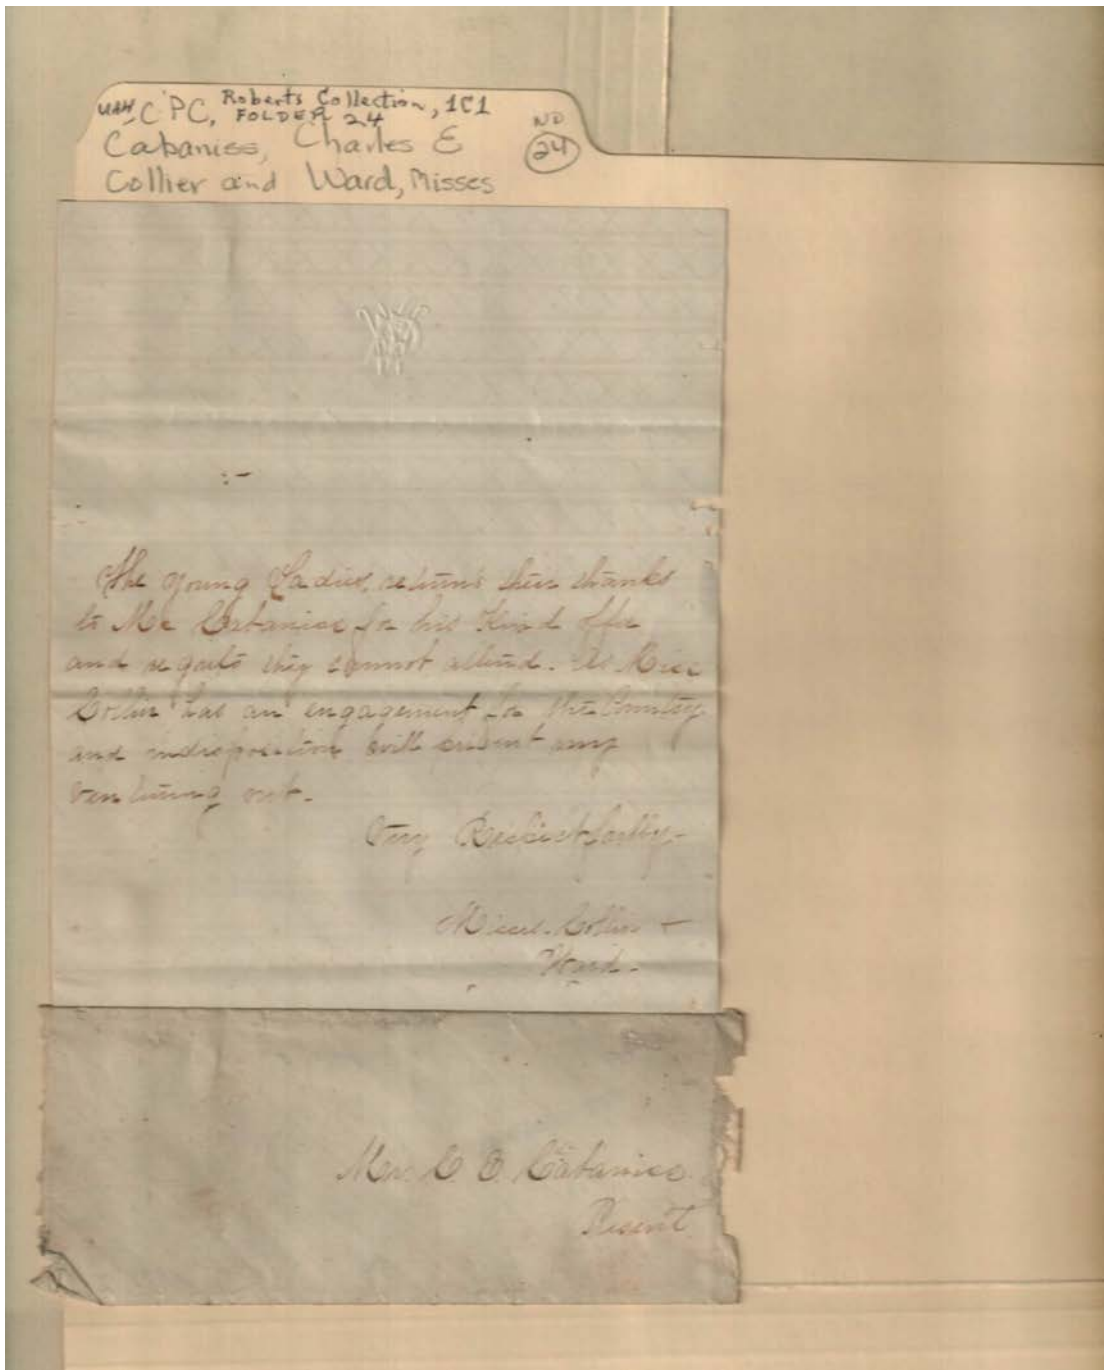 UAH, CPC, Roberts Collection, 1C1
FOLDER 24
ND
24
Cabaniss, Charles E
Collier and Ward, Misses
:-
The young Ladies, returns their thanks
to Mr Cabaniss for his Kind offer
and regrets they cannot attend. As Miss
Collier has an engagement in the Country
and indisposition will prevent my
venturing out.
Very Respectfully-
Misses. Collier -
Ward-
Mr. C. E. Cabaniss.
Present